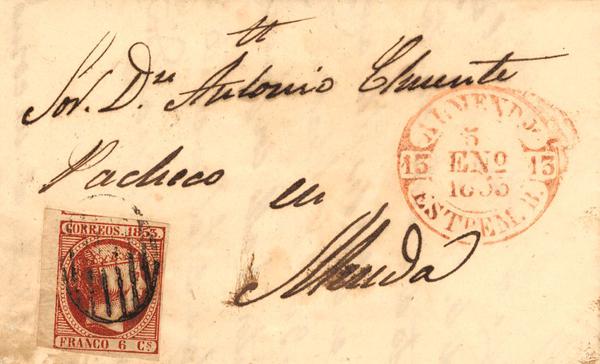 tt
Sor. Dn. Antonio Clemente
Pacheco en
Merida
ALMENDJO.
5
ENº
1853
13
13
ESTREM. B.
CORREOS. 1853
FRANCO 6 Cs